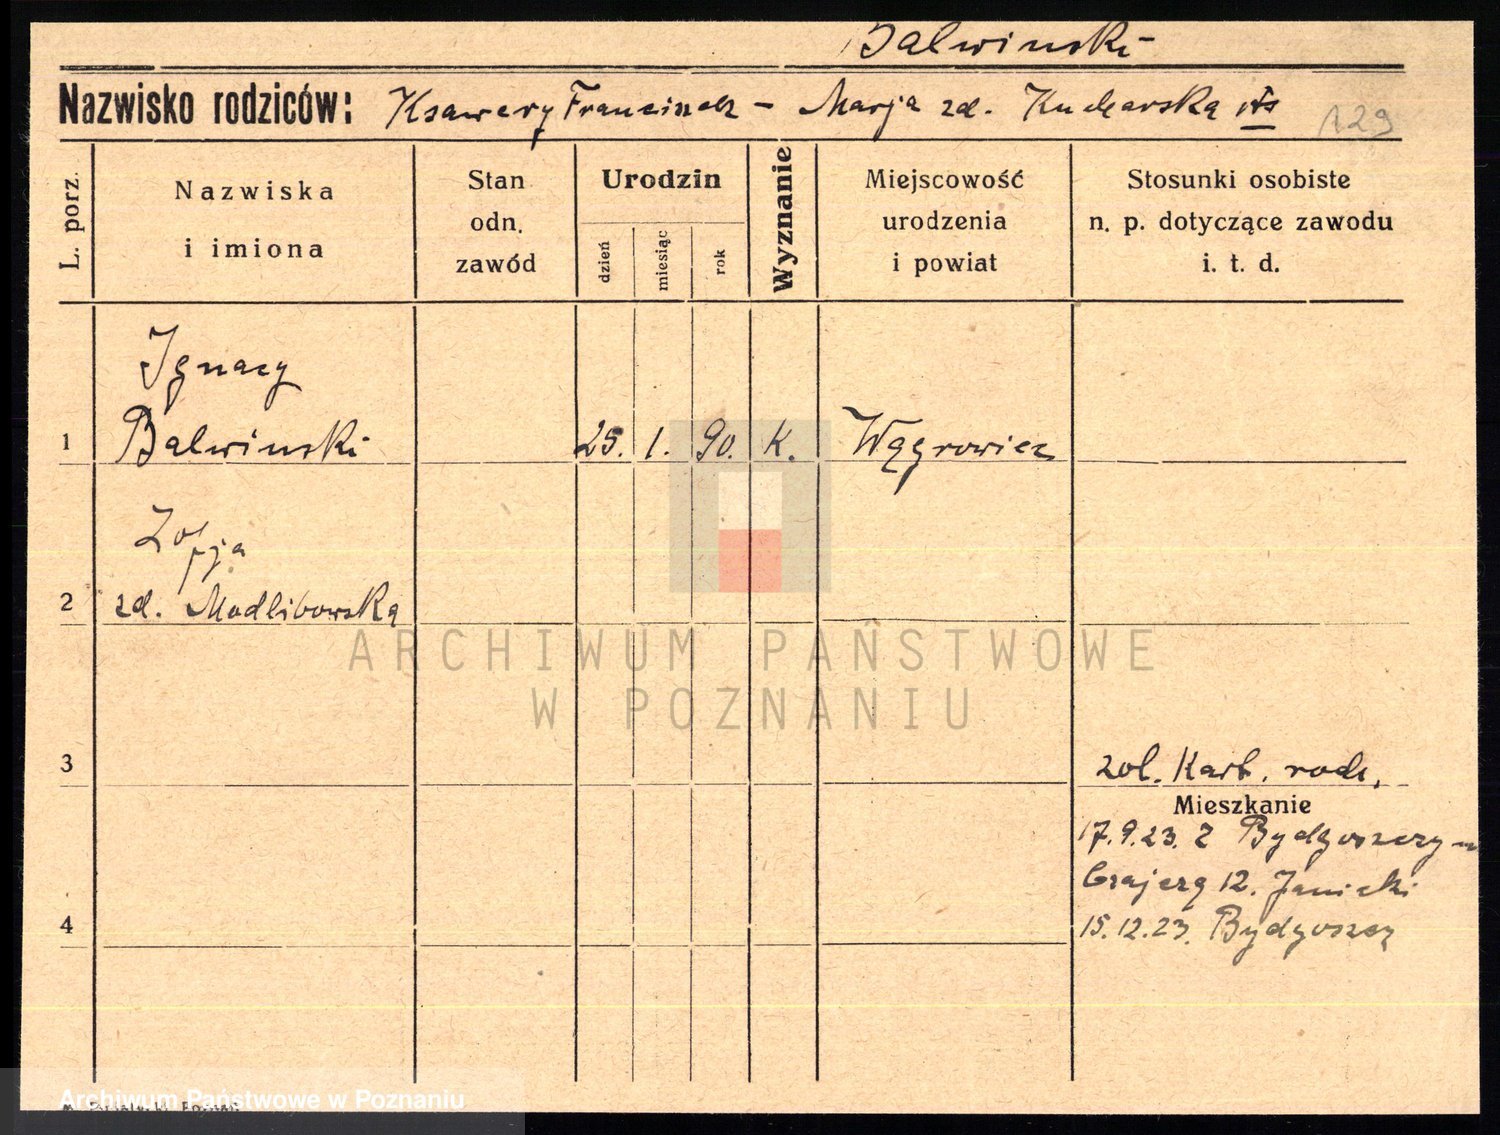 Balwinski
Nazwisko rodziców: Ksawery Franciszek - Marja zd. Kucharska
129
L. porz.
Nazwiska
i imiona
Stan
odn.
zawód
Urodzin
dzień
miesiąc
rok
Wyznanie
Miejscowość
urodzenia
i powiat
Stosunki osobiste
n. p. dotyczące zawodu
i. t. d.
Ignacy
1 Balwinski 25. 1. 90. K. Wągrowiec
Zofja
2 zd. Modlibowska
ARCHIWUM PAŃSTWOWE
W POZNANIU
3
Mieszkanie
17.9.23. z Bydgoszczy
12. Janicki
4 15.12.23. Bydgoszcz
Archiwum Państwowe w Poznaniu